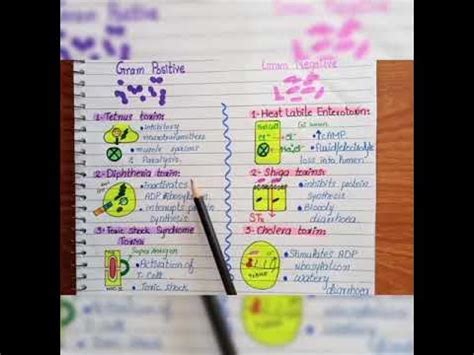 Gram Positive
1-Tetnus toxin:
• inhibitory
neurotransmitters
• muscle spasms
& Paralysis.
2-Diphtheria toxin:
• inactivates
ADP ribosylation
• interrupts protein
synthesis
3-Toxic shock Syndrome
Toxin:
Super Antigen
• Activation of
T Cell
• Toxic shock
Gram Negative
1-Heat Labile Enterotoxin:
↑cAMP
• Fluid/electrolyte
loss into lumen
2-Shiga toxins:
• inhibits protein
synthesis
• Bloody
diarrhoea
3-Cholera toxin:
• Stimulates ADP
ribosylation
• watery
diarrhoea